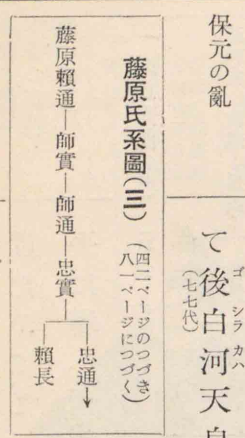 保元の亂
て後白河天皇
ゴシラカハ
(七七代)
藤原氏系圖(三)
(四二ページのつづき
八一ページにつづく)
藤原賴通―師實―師通―忠實
忠通↓
賴長